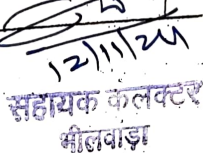 12/11/24
सहायक कलक्टर
भीलवाड़ा